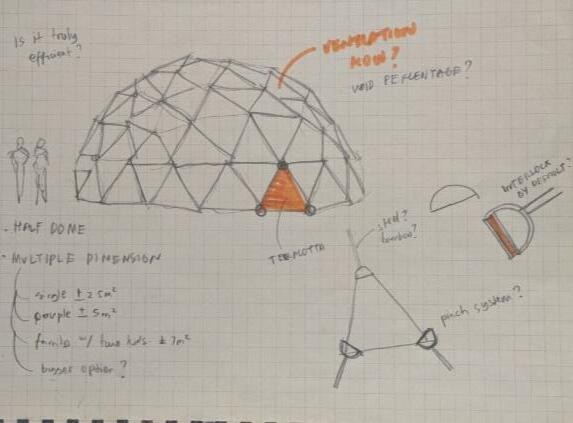 Is it truly
efficient?
VENTILATION
HOW?
VOID PERCENTAGE?
INTERLOCK
BY DEFAULT?
steel?
bamboo?
TERACOTTA
- HALF DOME
- MULTIPLE DIMENSION
single ± 2.5m²
couple ± 5m²
family w/ two kids ± 7m²
bigger option?
pinch system?